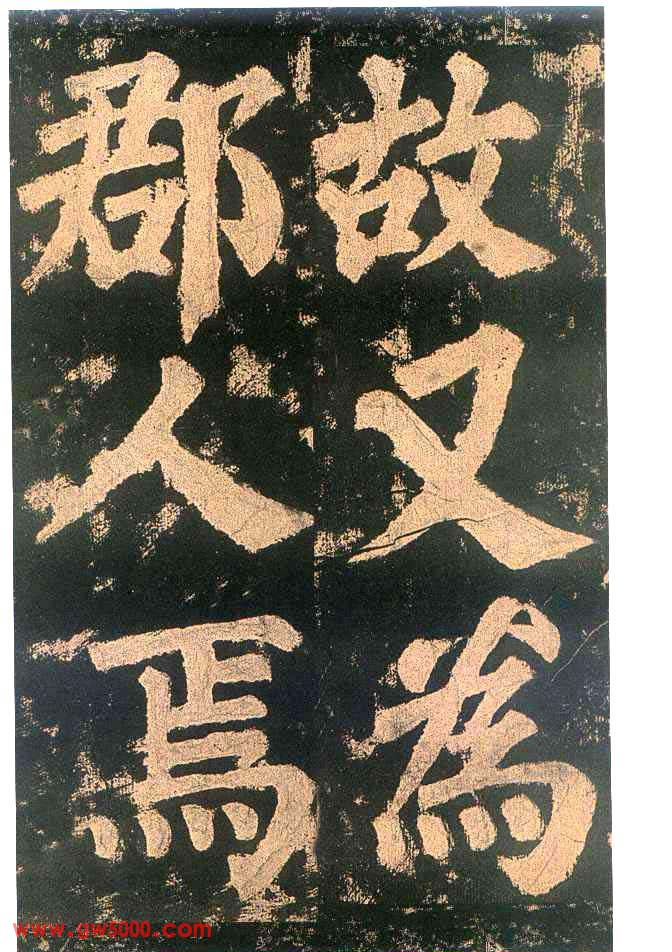 故又為
郡人焉
www.gw5000.com